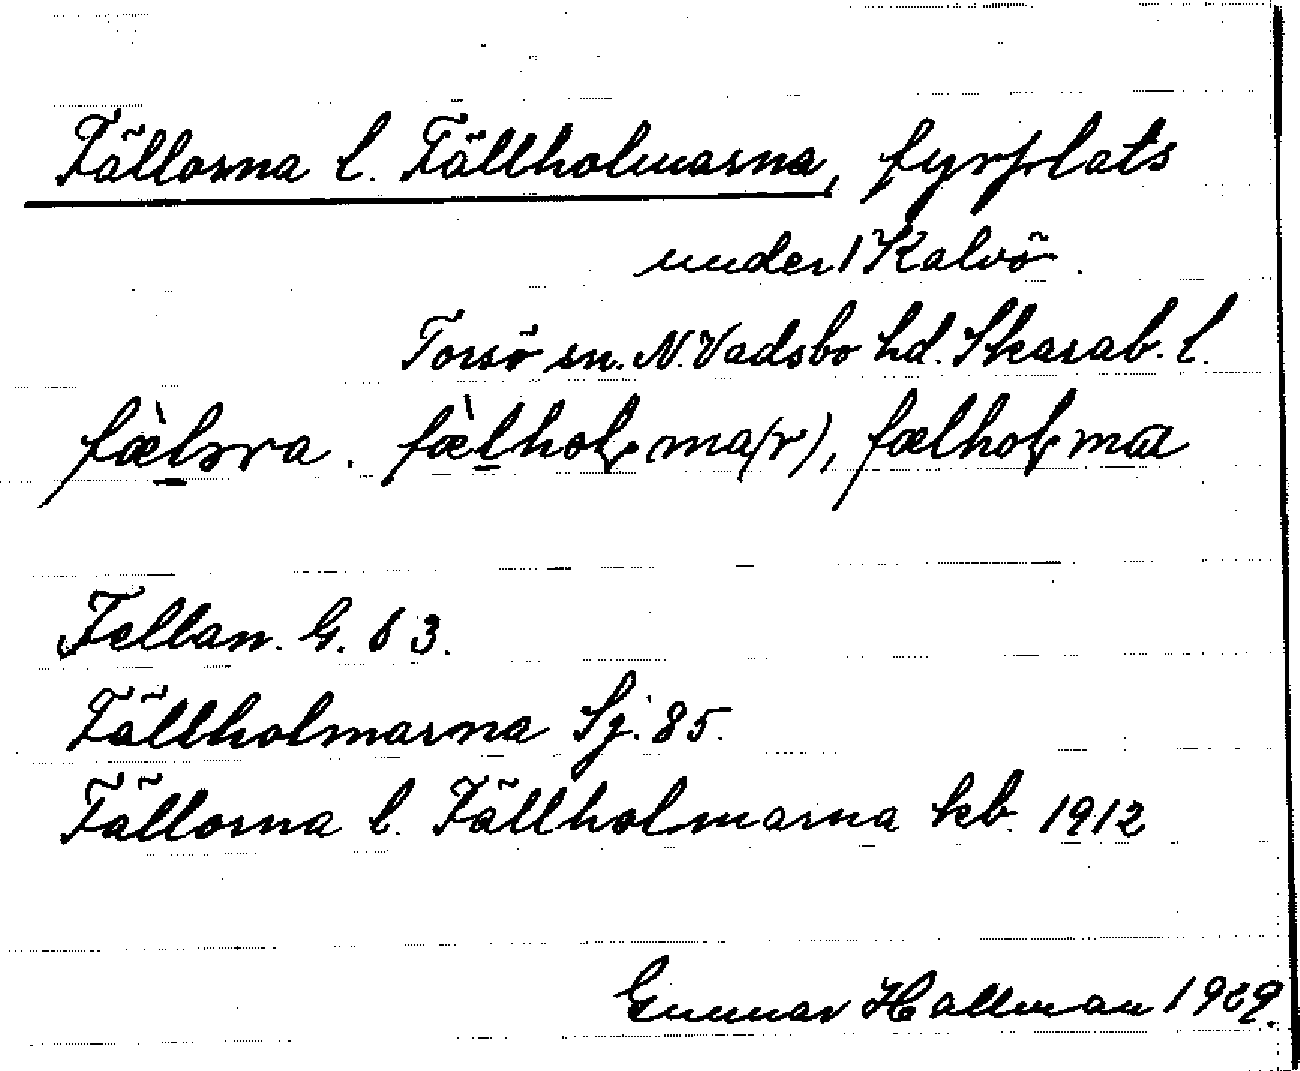 Fällorna l. Fällholmarna, fyrplats
under 1 Kalvö.
Torsö sn. N. Vadsbo hd. Skarab. l.
fæ̀lɔra. fæ̀lholma(r), fælholma
Fellan. G. 83.
Fällholmarna Sj. 85.
Fällorna l. Fällholmarna kb. 1912
Gunnar Hallman 1929.